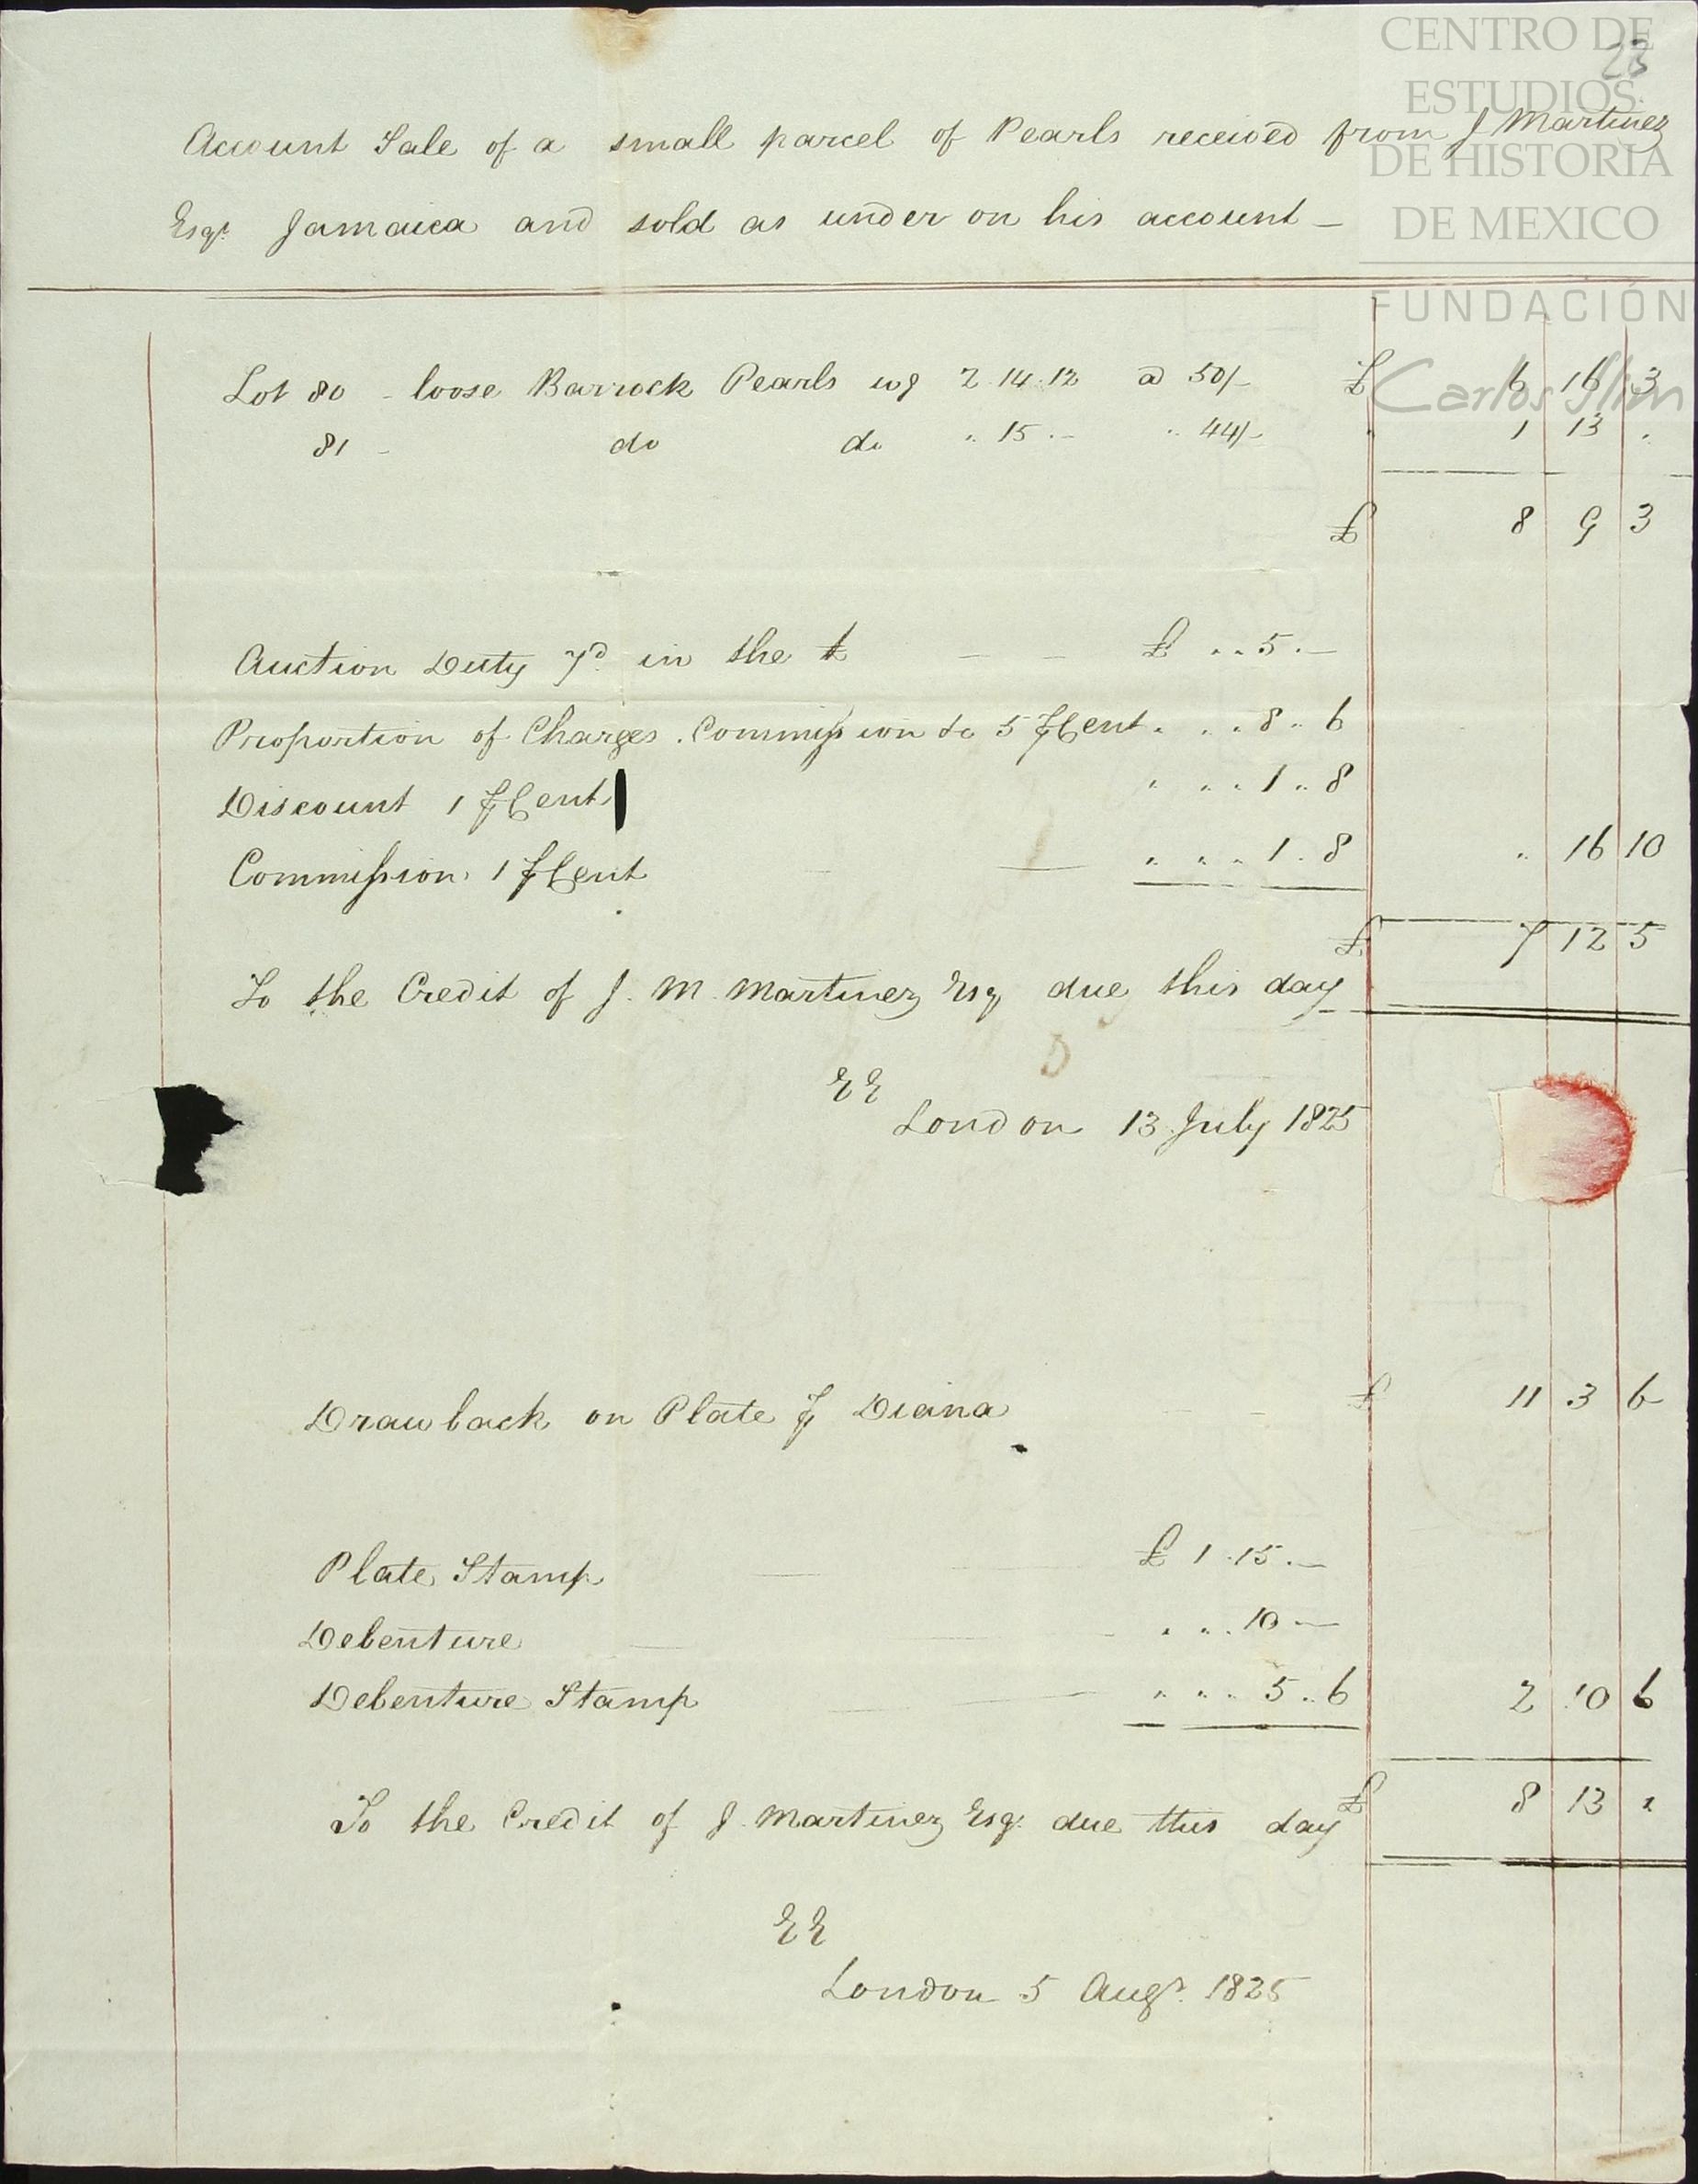 CENTRO DE
ESTUDIOS
DE HISTORIA
DE MEXICO
FUNDACIÓN
Carlos Slim
23
Account Sale of a small parcel of Pearls received from J Martinez
Esqr. Jamaica and sold as under on his account —
Lot 80 - loose Barrock Pearls wg 2.14.12 @ 50/- £ 6 16 3
81 - do do " 15 . - " 44/- " 1 13 "
£ 8 9 3
Auction Duty 7d in the £ — — £ " " 5 . —
Proportion of Charges. Commission &c 5 ⅌Cent " " " 8 " 6
Discount 1 ⅌Cent " " " 1 " 8
Commission 1 ⅌Cent — " " " 1 . 8 " 16 10
£ 7 12 5
To the Credit of J. M. Martinez Esq due this day
EE
London 13 July 1825
Drawback on Plate ⅌ Diana £ 11 3 6
Plate Stamp £ 1 . 15 . —
Debenture " " 10 —
Debenture Stamp " " " 5 " 6 2 10 6
£ 8 13 "
To the Credit of J. Martinez Esq. due this day
EE
London 5 Augt. 1825